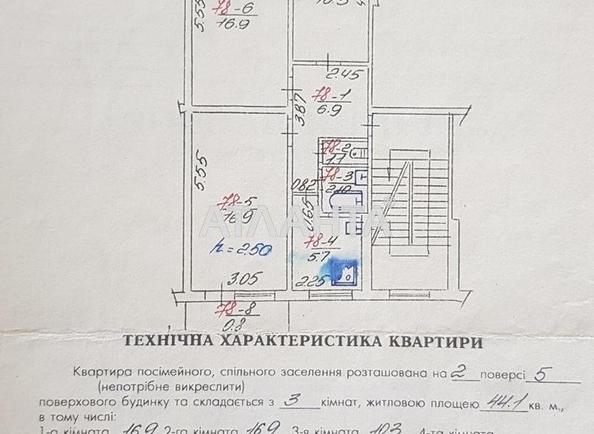 5.55
78-6
16.9
10.3
2.45
78-1
6.9
3.87
78-2
1.1
78-3
2.10
5.55
0.82
0.65
78-5
16.9
АТЛАНТА
h=2.50
78-4
5.7
3.05
2.25
78-8
0.8
ТЕХНІЧНА ХАРАКТЕРИСТИКА КВАРТИРИ
Квартира посімейного, спільного заселення розташована на 2 поверсі 5
(непотрібне викреслити)
поверхового будинку та складається з 3 кімнат, житловою площею 44.1 кв. м.,
в тому числі:
1-а кімната 16.9 2-га кімната 16.9 3-я кімната 10.3 4-та кімната